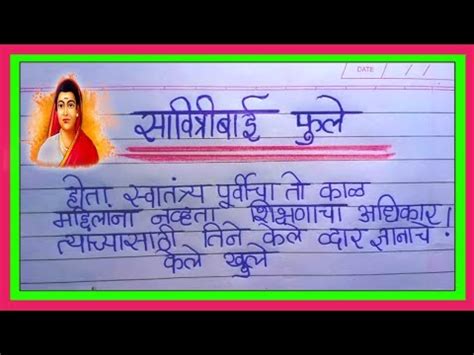 DATE
सावित्रीबाई फुले
होता. स्वातंत्र्य पूर्वीचा तो काळ
महिलाना नव्हता शिक्षणाचा अधिकार!
त्याच्यासाठी तिने केले व्दार ज्ञानाचे
केले खूले